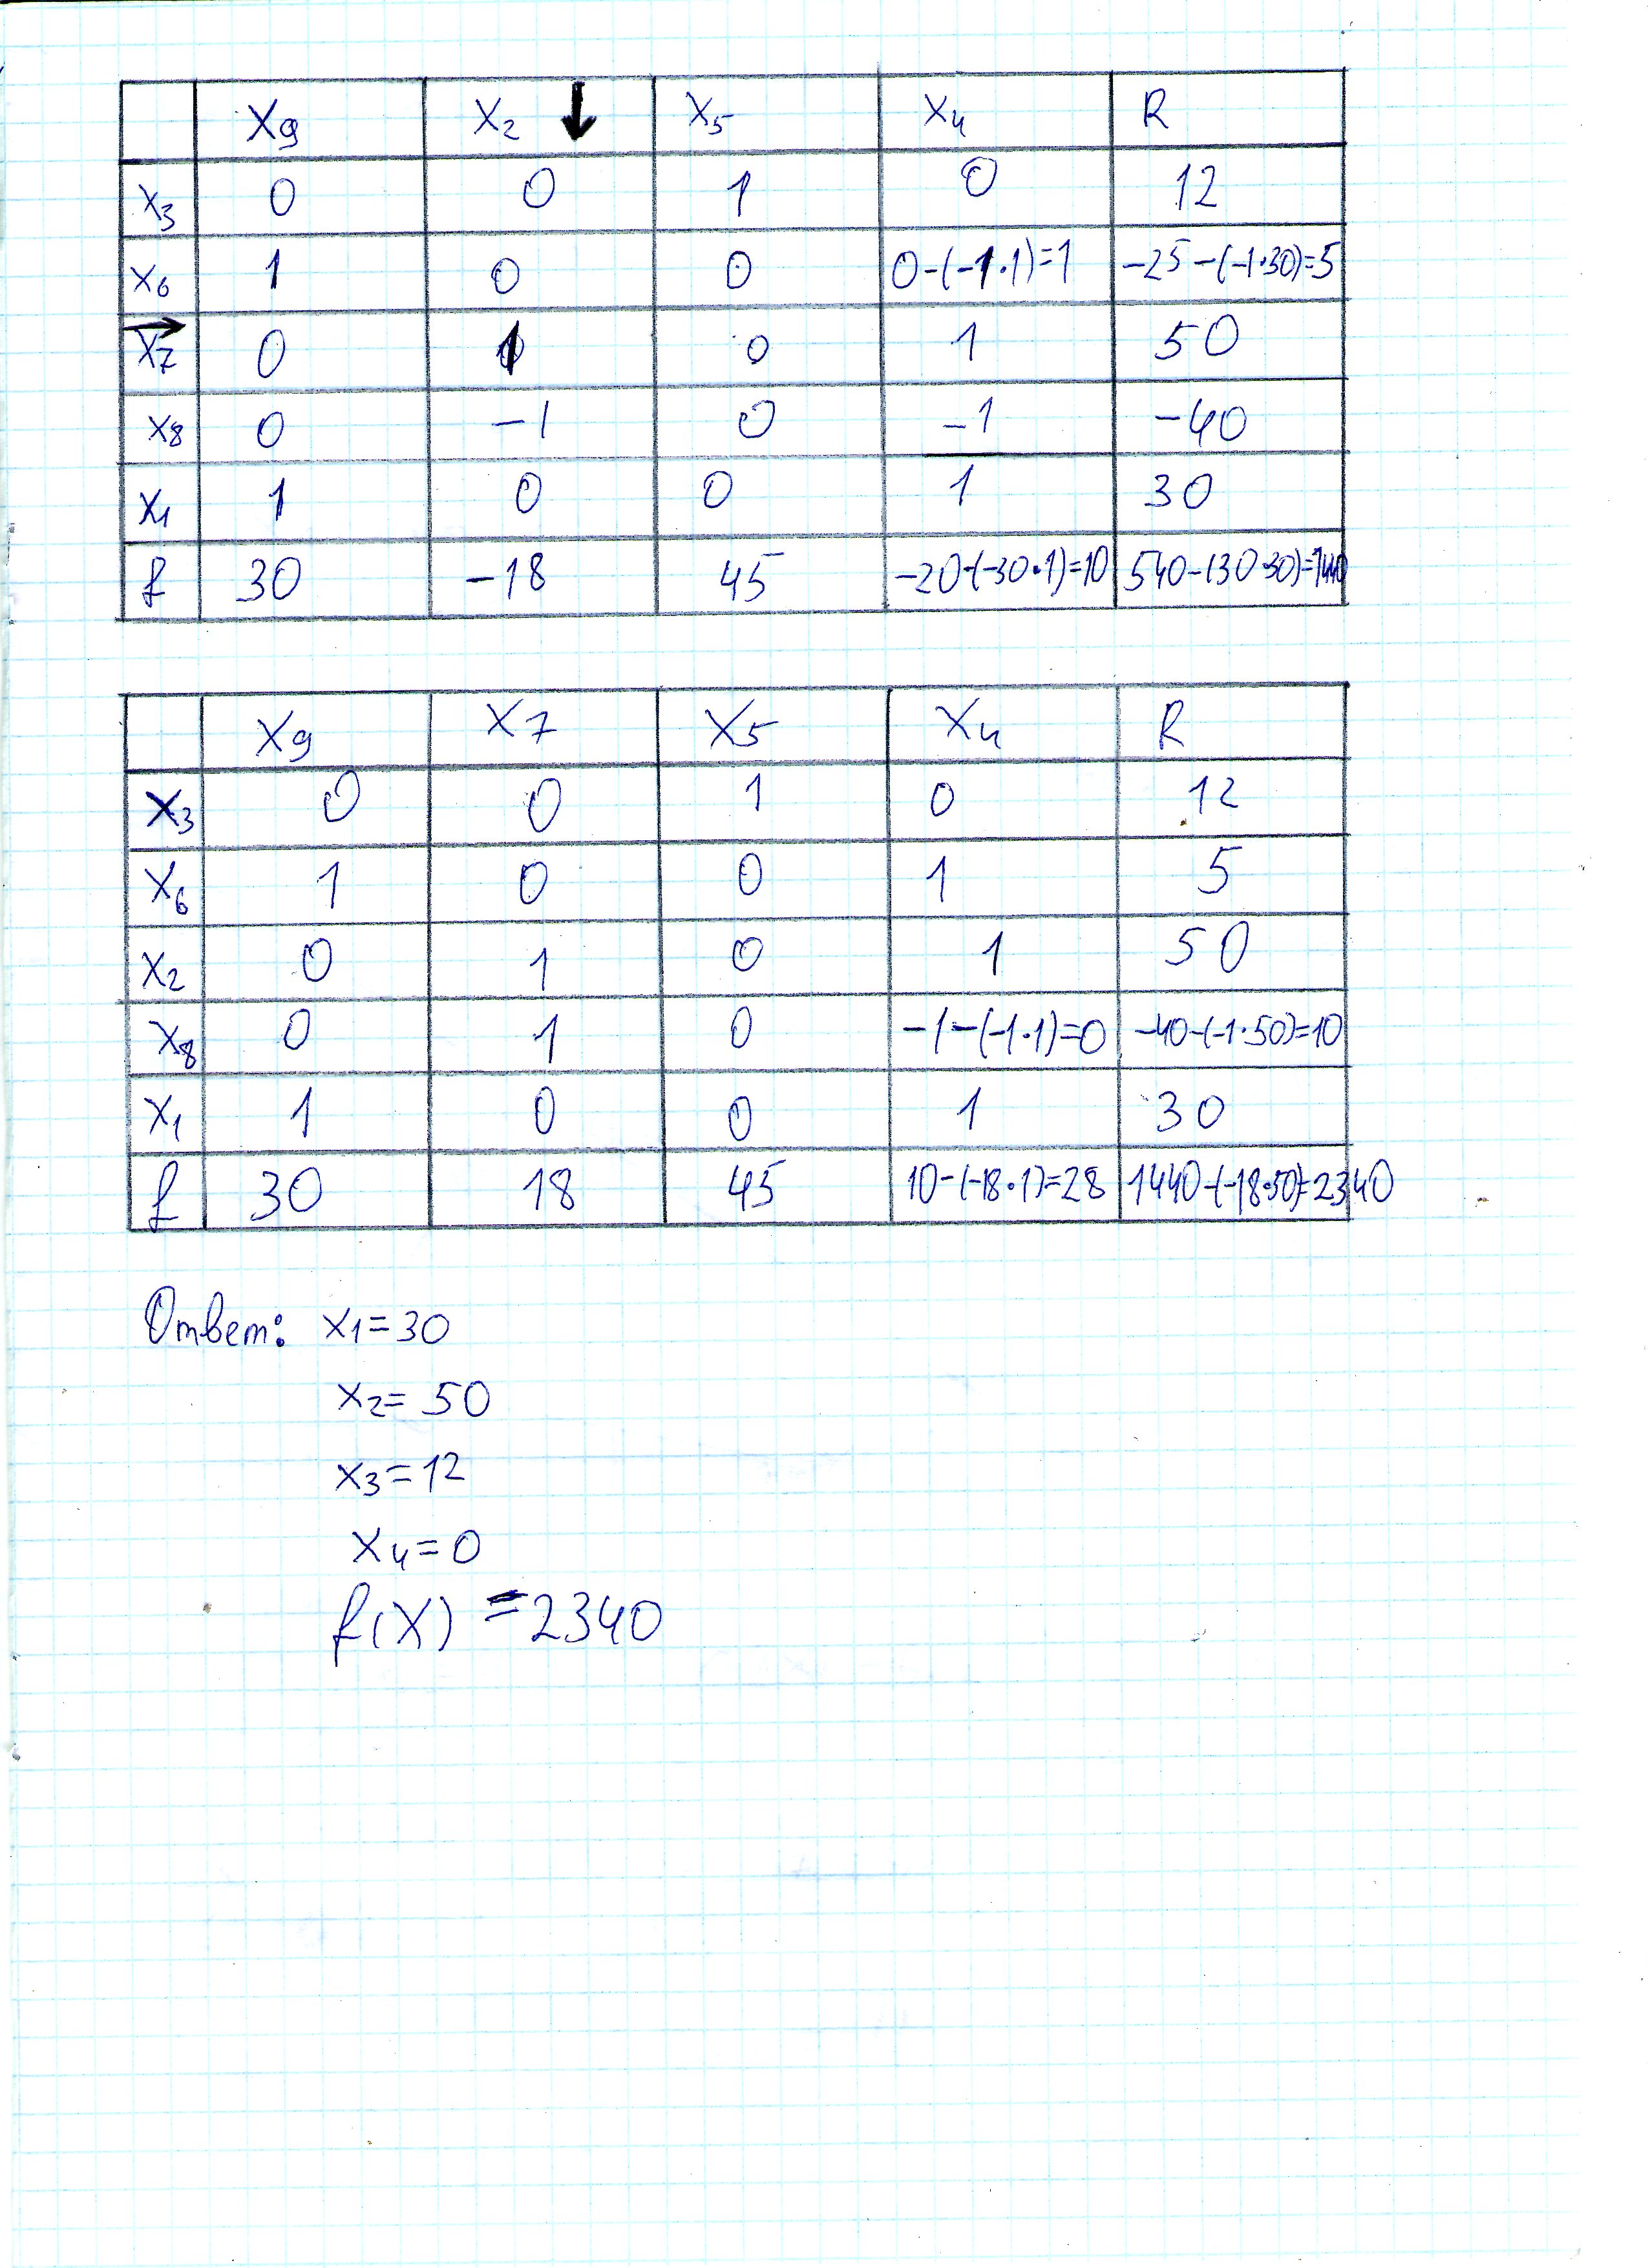 X9 X2 ↓ X5 X4 R
X3 0 0 1 0 12
X6 1 0 0 0-(-1·1)=1 -25-(-1·30)=5
X7 0 1 0 1 50
X8 0 -1 0 -1 -40
X1 1 0 0 1 30
f 30 -18 45 -20-(-30·1)=10 540-(30·30)=1440
X9 X7 X5 X4 R
X3 0 0 1 0 12
X6 1 0 0 1 5
X2 0 1 0 1 50
X8 0 1 0 -1-(-1·1)=0 -40-(-1·50)=10
X1 1 0 0 1 30
f 30 18 45 10-(-18·1)=28 1440-(-18·50)=2340
Ответ: X1=30
X2=50
X3=12
X4=0
f(X)=2340